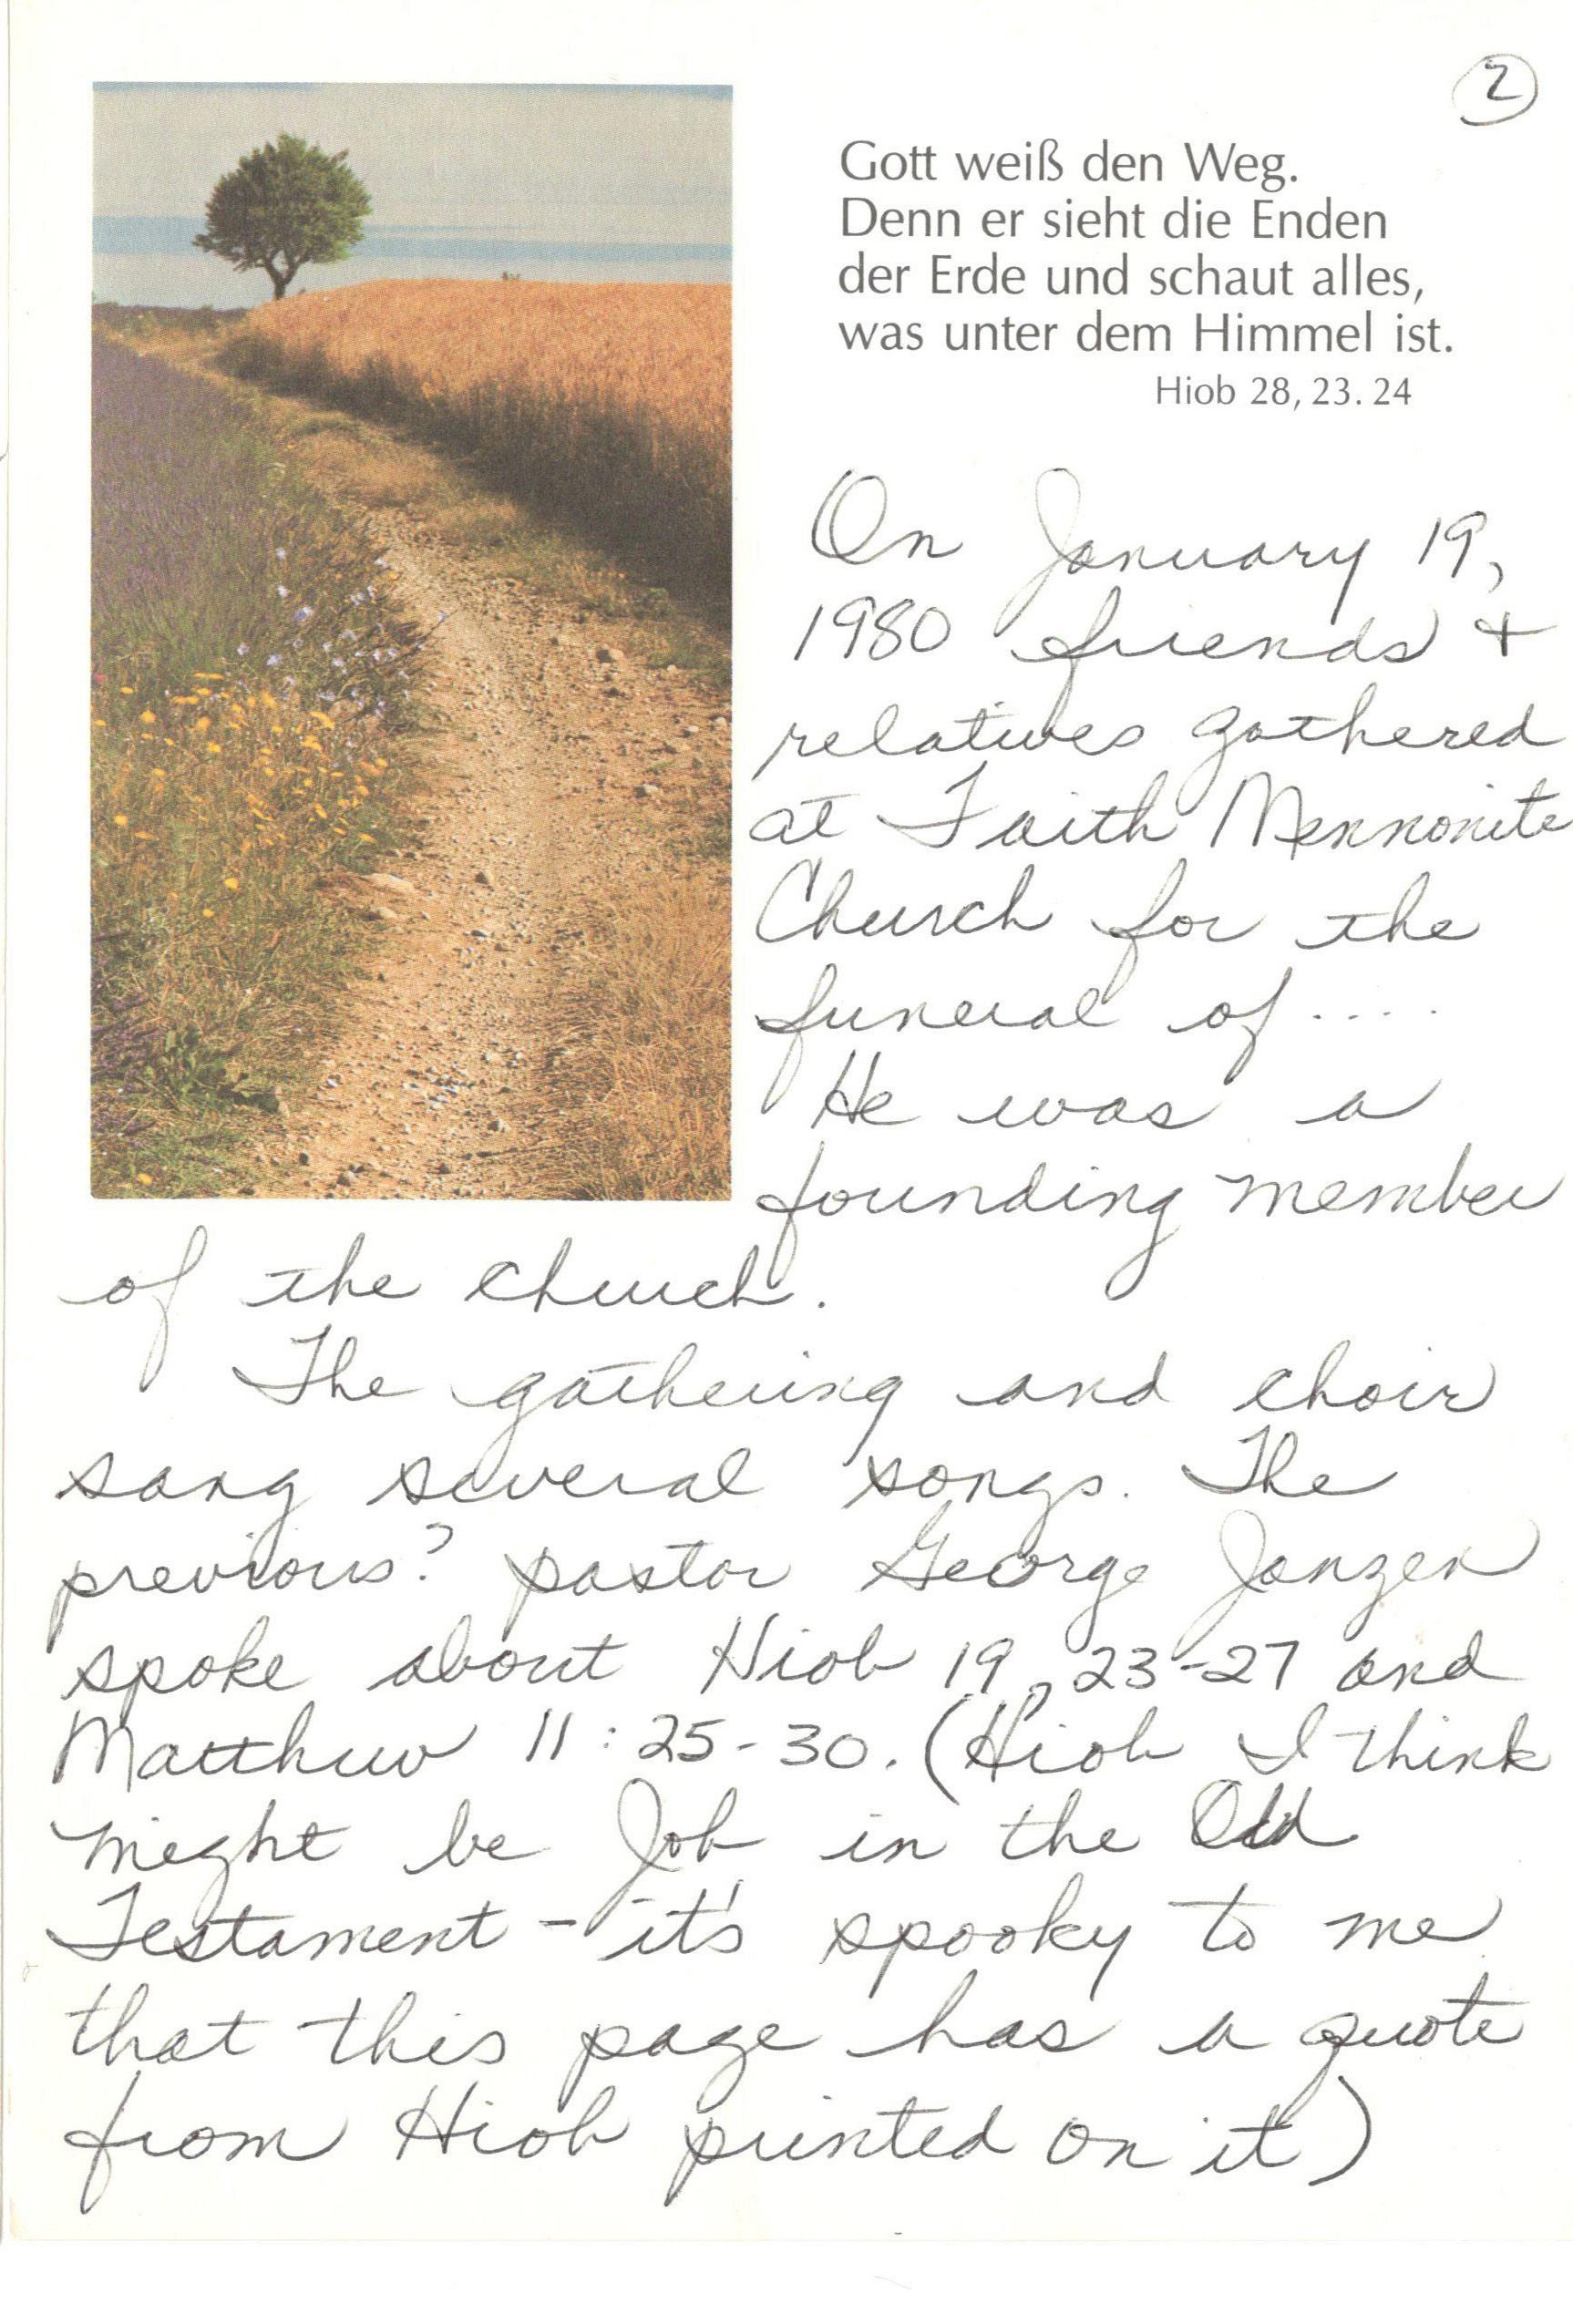 2
Gott weiß den Weg.
Denn er sieht die Enden
der Erde und schaut alles,
was unter dem Himmel ist.
Hiob 28, 23. 24
On January 19,
1980 friends +
relatives gathered
at Faith Mennonite
Church for the
funeral of ....
He was a
founding member
of the church.
The gathering and choir
sang several songs. The
previous? pastor George Janzen
spoke about Hiob 19, 23-27 and
Matthew 11:25-30. (Hiob I think
might be Job in the Old
Testament - it's spooky to me
that this page has a quote
from Hiob printed on it)